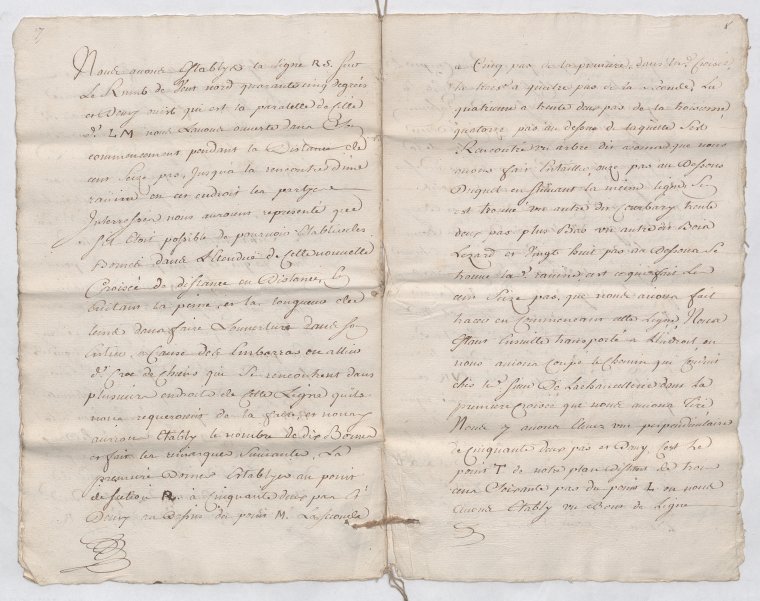 17
Nous avons Etablye la Ligne RS. sur
Le Rumb de Vent nord quarante cinq degrees
et Demy ouest qui est la paralelle de celle
d.^e LM nous L'avons ouverte dans Le
commencement pendant la Distance de
cent Seize pas, Jusqua la rencontre d'une
ravine en cet endroit les partyes
Interressées nous auroient representé que
S'il étoit possible de pouvoir Etablir les
Bornes dans L'Etendue de Cette nouvelle
Croisée de distance en Distance, Le
la peine, et la longueur de
tems dans faire L'ouverture dans son
entier, a Cause des Embarras ou alliers
d.^t Croc de chiens qui Se rencontrent dans
plusieurs endroits de Cette Ligne quils
nous requeroient de la faire, et nous y
aurions Etably le nombre de dix Bornes
et fait les remarques Suivantes, La
premiere Borne Establye au point
de section R. a Cinquante deux pas et
Demy au Dessus du point M. La seconde
a Cinq pas de la premiere, dans la d.^e Croisée
la trois.^e a quatre pas de la Seconde, La
quatrieme a trente deux pas de la troisieme
quatorze pas au dessous de laquelle s'est
Rencontré un arbre dit acomat que nous
avons fait Entailler, onze pas au Dessous
Duquel en suivant la meme ligne Se
est trouvé un autre dit Courbary trente
deux pas plus Bas un autre dit Bois
Lezard et Vingt huit pas au Dessous Se
trouve la d.^e ravine, cest ce qui fait Le
cent Seize pas, que nous avons fait
tracer en Commencant cette Ligne, Nous
Etant Ensuitte transporté a L'endroit ou
nous avions Coupé le Chemin qui Conduit
chés le d.^t Sieur De Lachancellerie dans la
premiere Croisée que nous avons tiré
Nous y avons Elevé une perpendiculaire
de Cinquante deux pas et Demy C'est Le
point T de notre plan distant de trois
cens Soixante pas du point L ou nous
avons Etably un Bout de Ligne